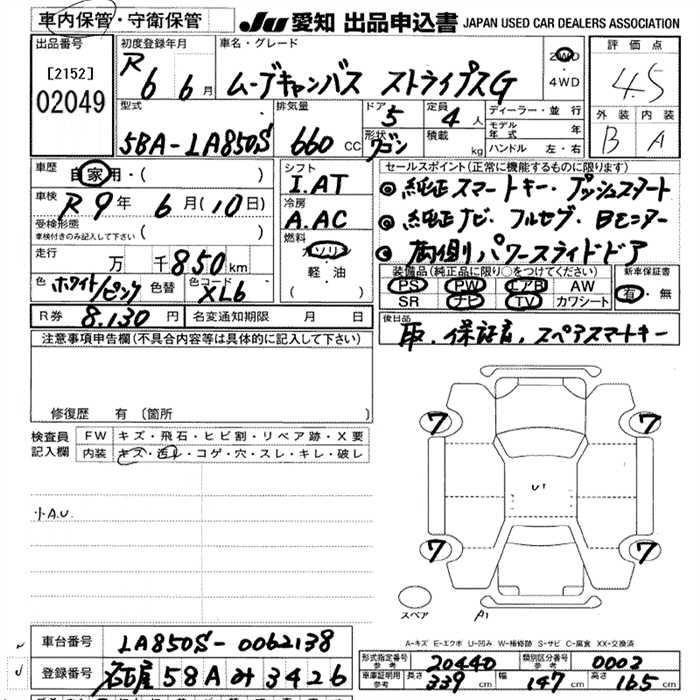 車内保管・守衛保管
JU 愛知 出品申込書 JAPAN USED CAR DEALERS ASSOCIATION
出品番号
[2152]
02049
初度登録年月
R6 6月
車名・グレード
ムーブキャンバス ストライプスG
2WD
・4WD
評価点
4.5
外装 内装
B A
型式
5BA-LA850S
排気量
660 cc
ドア 5
定員 4人
形状 ワゴン
積載 kg
ディーラー・並行
モデル年式 年
ハンドル 左・右
車歴
自家用・( )
車検
R9年 6月(10日)
受検形態
車検付きのみ記入して下さい ( )
走行
万 千850km
色 ホワイト/ピンク 色替 色コード XL6
R券 8,130円 名変通知期限 月 日
シフト
I.AT
冷房
A.AC
燃料
ガソリン
・軽・油
( )
セールスポイント(正常に機能するものに限ります)
◎純正スマートキー・プッシュスタート
◎純正ナビ・フルセグ・Bモニター
◎両側パワースライドドア
装備品(純正品に限り○をつけてください)
PS PW エアB AW
SR ナビ TV カワシート
新車保証書
有・無
後日品
印、保証書、スペアスマートキー
注意事項申告欄(不具合内容等は具体的に記入して下さい)
修復歴 有(箇所 )
検査員記入欄
FW キズ・飛石・ヒビ割・リペア跡・X要
内装 キズ・汚レ・コゲ・穴・スレ・キレ・破レ
小A.U.
7 7
U1
7 7
スペア
A1
A-キズ E-エクボ U-凹み W-補修跡 S-サビ C-腐食 XX-交換済
車台番号 LA850S-0062138
登録番号 名古屋 58Aみ3426
形式指定番号 参考 20440 類別区分番号 参考 0003
車庫証明用 参考 長さ 339cm 幅 147cm 高さ 165cm